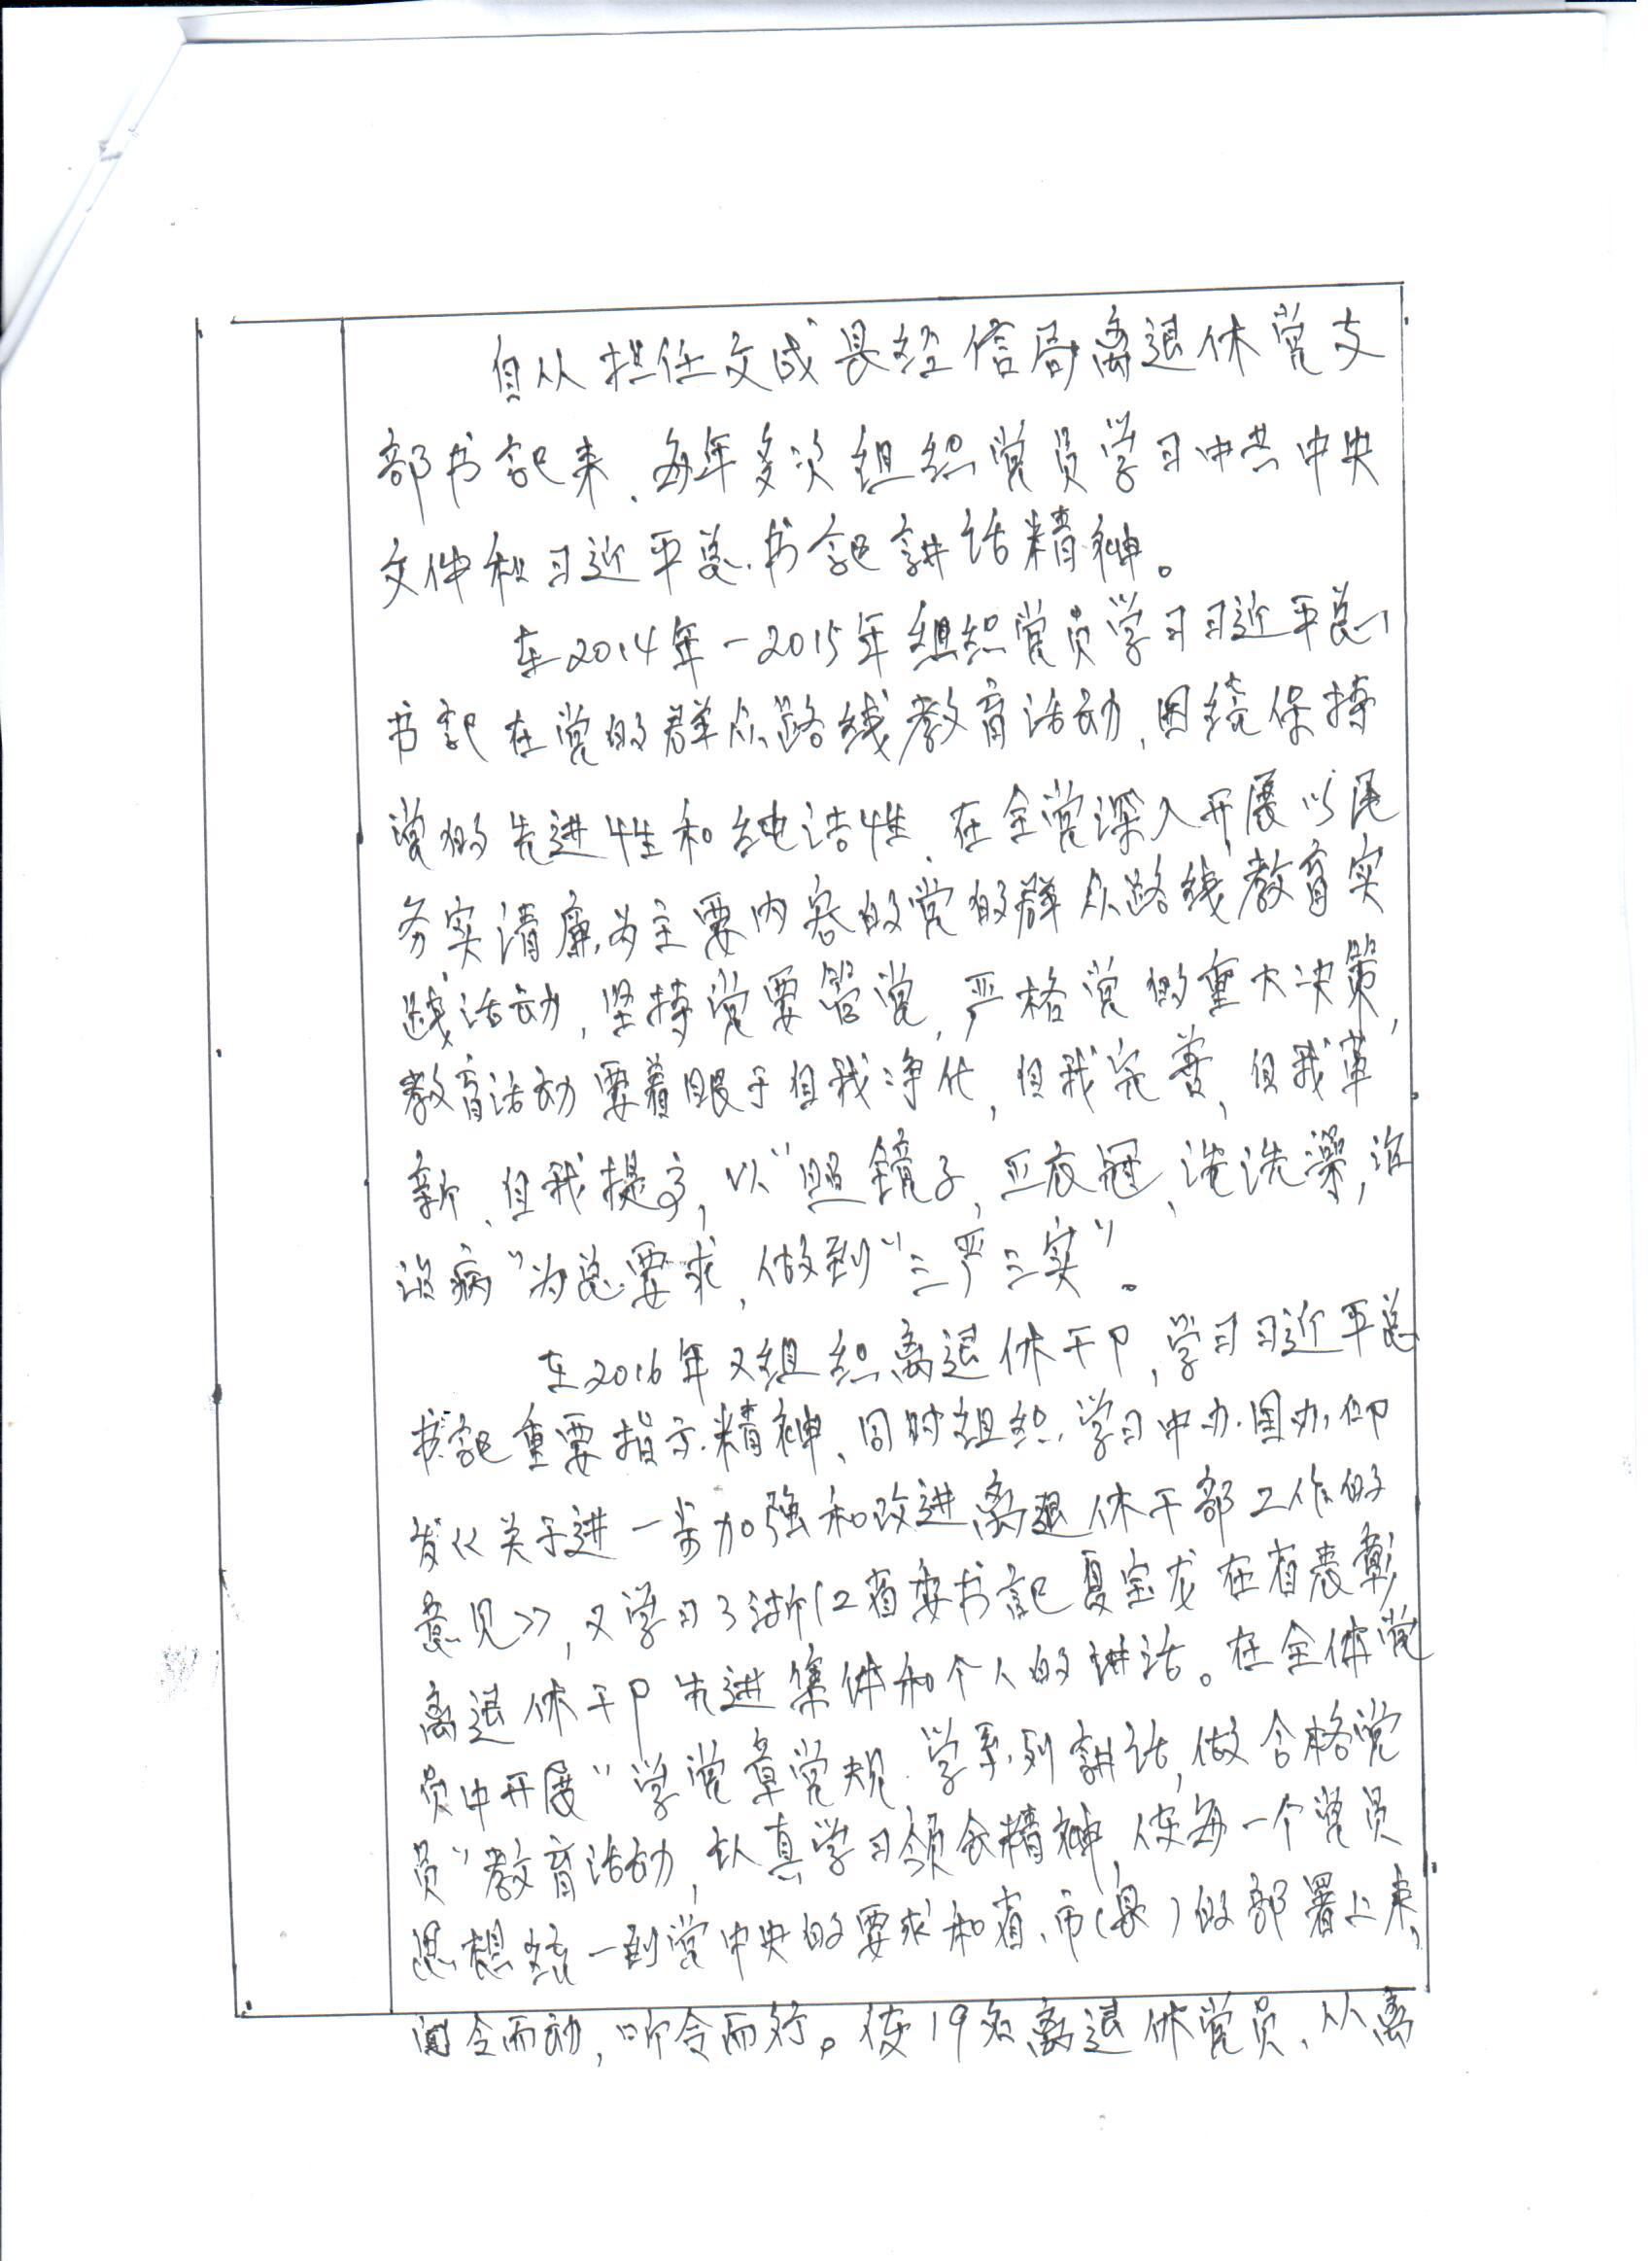 自从担任文成县经信局离退休党支
部书记来、每年多次组织党员学习中共中央
文件和习近平总书记讲话精神。
在2014年-2015年组织党员学习习近平总
书记在党的群众路线教育活动,围绕保持
党的先进性和纯洁性、在全党深入开展以民
务实清廉为主要内容的党的群众路线教育实
践活动,坚持党要管党,严格党的重大决策,
教育活动要着眼于自我净化,自我完善,自我革
新、自我提高,以“照镜子,正衣冠、洗洗澡,治
治病”为总要求,做到“三严三实”。
在2016年又组织离退休干卩,学习习近平总
书记重要指示精神、同时组织学习中办·国办印
发《关于进一步加强和改进离退休干部工作的
意见》,又学习了浙江省委书记夏宝龙在省表彰
离退休干卩先进集体和个人的讲话。在全体党
员中开展“学党章党规、学系列讲话,做合格党
员”教育活动,认真学习领会精神,使每一个党员
思想统一到党中央的要求和省、市(县)的部署上来,
闻令而动,听令而行。使19名离退休党员、从离